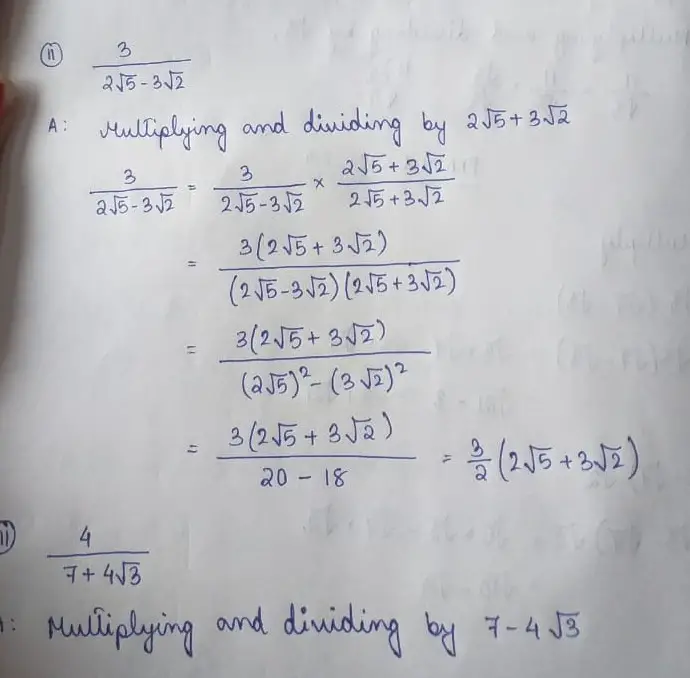 (ii) 3/(2√5-3√2)
A: Multiplying and dividing by 2√5+3√2
3/(2√5-3√2) = 3/(2√5-3√2) × (2√5+3√2)/(2√5+3√2)
= 3(2√5+3√2)/((2√5-3√2)(2√5+3√2))
= 3(2√5+3√2)/((2√5)²-(3√2)²)
= 3(2√5+3√2)/(20-18) = 3/2 (2√5+3√2)
4/(7+4√3)
: Multiplying and dividing by 7-4√3